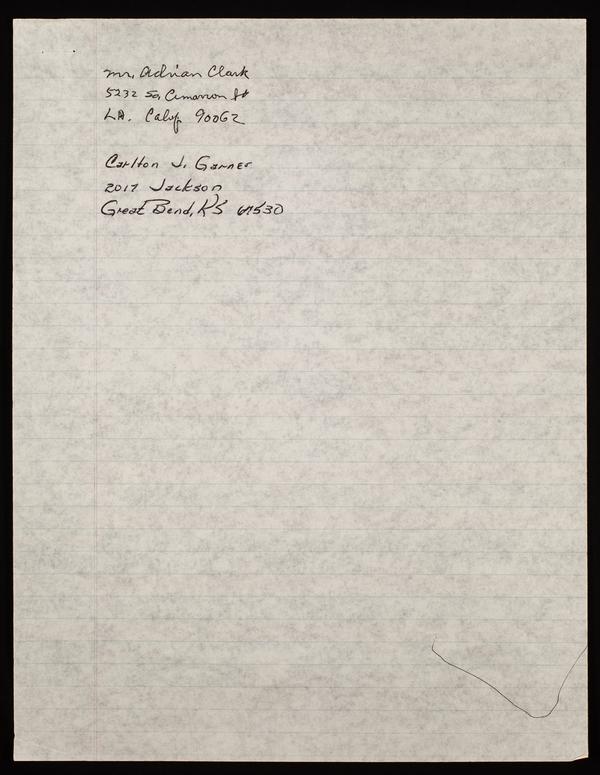 Mr. Adrian Clark
5232 So. Cimarron St
LA. Calif 90062
Carlton J. Garner
2017 Jackson
Great Bend, KS 67530